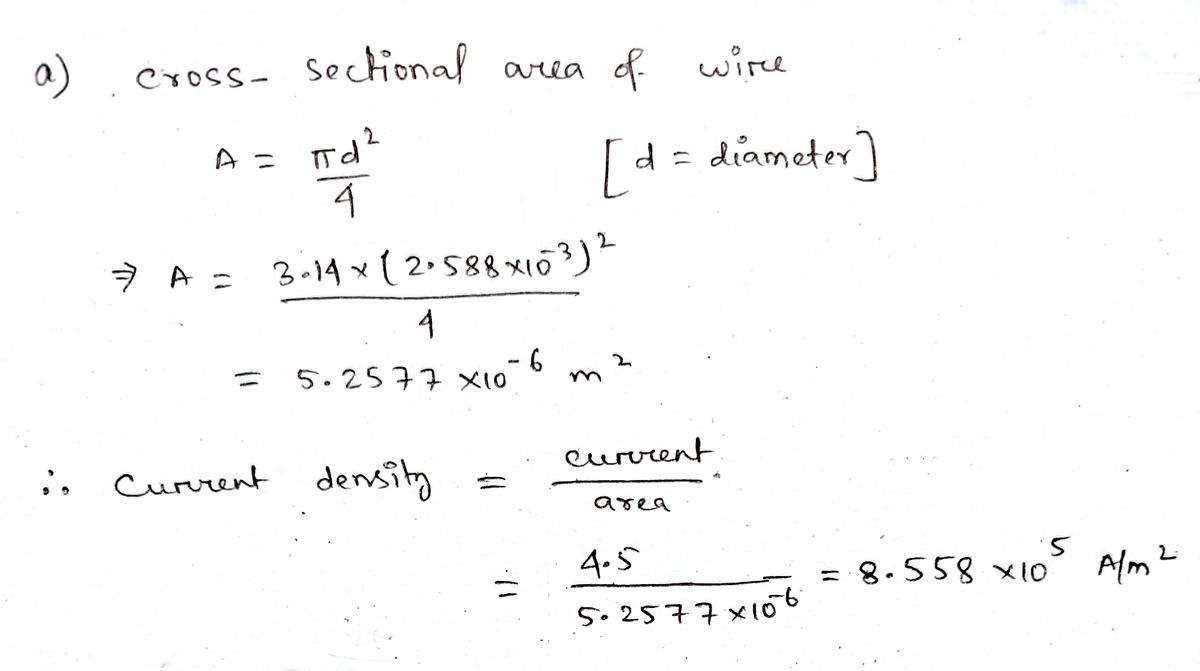 a) cross- sectional area of wire
A = πd²/4 [d = diameter]
⇒ A = 3.14 × (2.588 ×10⁻³)²/4
= 5.2577 ×10⁻⁶ m²
∴ Current density = current/area
= 4.5/5.2577 ×10⁻⁶ = 8.558 ×10⁵ A/m²